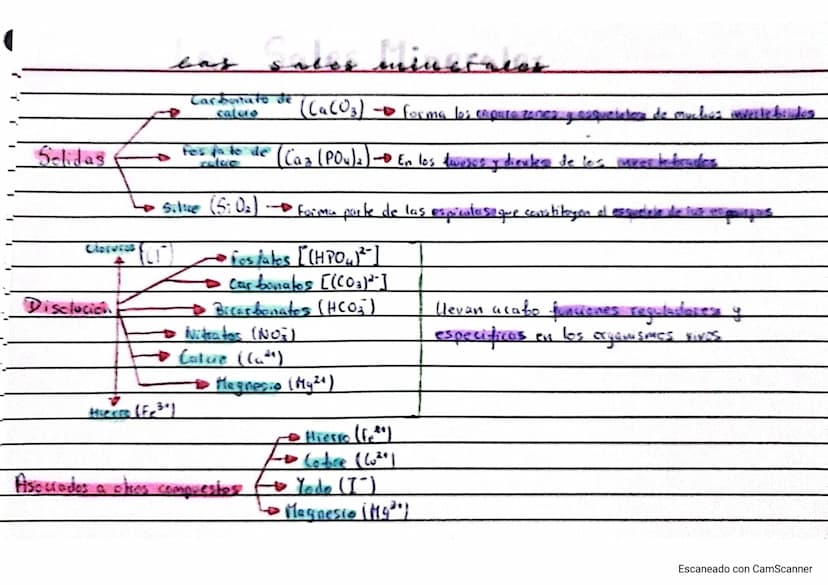 Las Sales Minerales
Carbonato de calcio (CaCO3) → Forma los caparazones y esqueletos de muchos invertebrados
Sólidas
Fosfato de calcio (Ca3(PO4)2) → En los huesos y dientes de los invertebrados
Silice (SiO2) → Forma parte de las espículas que constituyen el esqueleto de las esponjas
Cloruros (Cl⁻)
Fosfatos [(HPO4)²⁻]
Carbonatos [(CO3)²⁻]
Disolución
Bicarbonatos (HCO3⁻)
Nitratos (NO3⁻)
Calcio (Ca²⁺)
Magnesio (Mg²⁺)
Hierro (Fe³⁺)
llevan acabo funciones reguladoras y
específicas en los organismos vivos
Hierro (Fe²⁺)
Cobre (Cu²⁺)
Asociados a otros compuestos
Yodo (I⁻)
Magnesio (Mg²⁺)
Escaneado con CamScanner